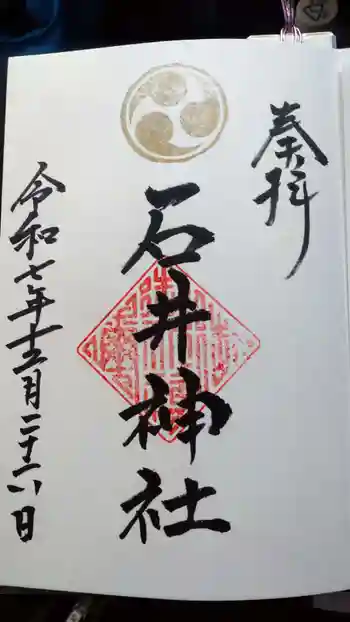 奉拝
石井神社
令和七年十二月二十八日